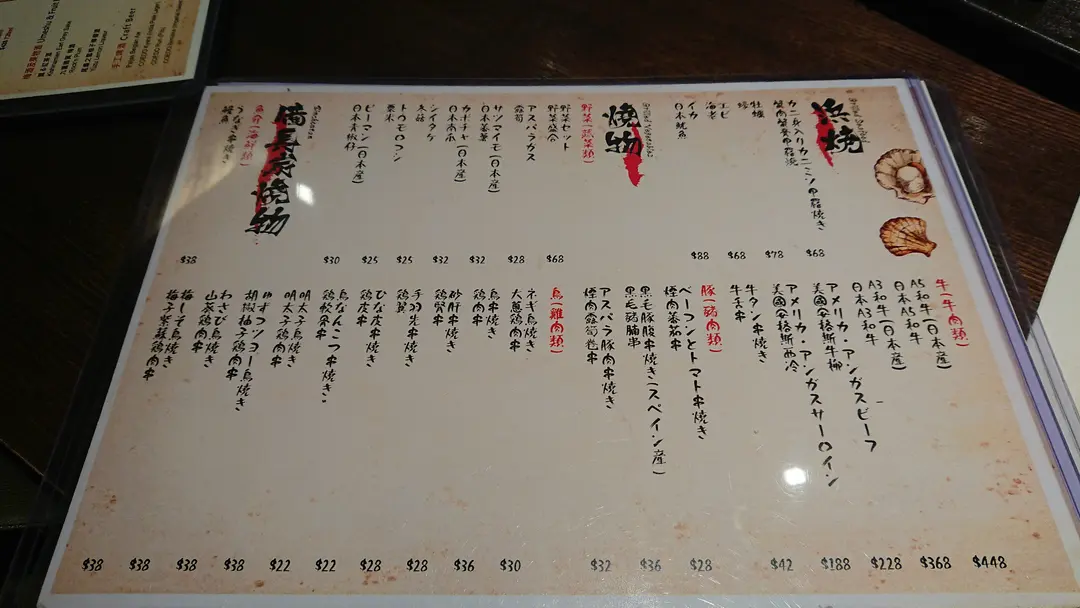 浜焼
カニ身入りカニミソ甲羅焼き
蟹肉蟹羔甲羅燒
$68
牡蠣
蠔
$78
エビ
海老
$68
イカ
日本魷魚
$88
焼物
野菜(蔬菜類)
野菜セット
野菜盛合
$68
アスパラガス
露筍
$28
サツマイモ(日本産)
日本蕃薯
$32
カボチャ(日本産)
日本南瓜
$32
シイタケ
大菇
$25
トウモロコシ
粟米
$25
ピーマン(日本産)
日本青椒仔
$30
備長炭焼物
魚介(海鮮類)
うなぎ串焼き
鰻魚
$38
牛(牛肉類)
A5和牛(日本産)
日本A5和牛
$448
A3和牛(日本産)
日本A3和牛
$368
アメリカ・アンガスビーフ
美國安格斯牛柳
$228
アメリカ・アンガスサーロイン
美國安格斯西冷
$188
牛タン串焼き
牛舌串
$42
豚(豬肉類)
ベーコンとトマト串焼き
煙肉蕃茄串
$28
黒毛豚腹串焼き(スペイン産)
黒毛豬腩串
$36
アスパラ豚肉串焼き
煙肉露筍卷串
$32
鳥(雞肉類)
ネギ鳥焼き
大蔥鶏肉串
$30
鳥串焼き
鶏肉串
$36
砂肝串焼き
鶏腎串
$28
手羽先串焼き
鶏翼
$28
ひな皮串焼き
鶏皮串
$22
鳥なんこつ串焼き
鶏軟骨串
$22
明太子鳥焼き
明太子鶏肉串
$38
ゆずコショー鳥焼き
胡椒柚子鶏肉串
$38
わさび鳥焼き
山葵鶏肉串
$38
梅しそ鳥焼き
梅子紫蘇鶏肉串
$38
手工啤酒 Craft Beer